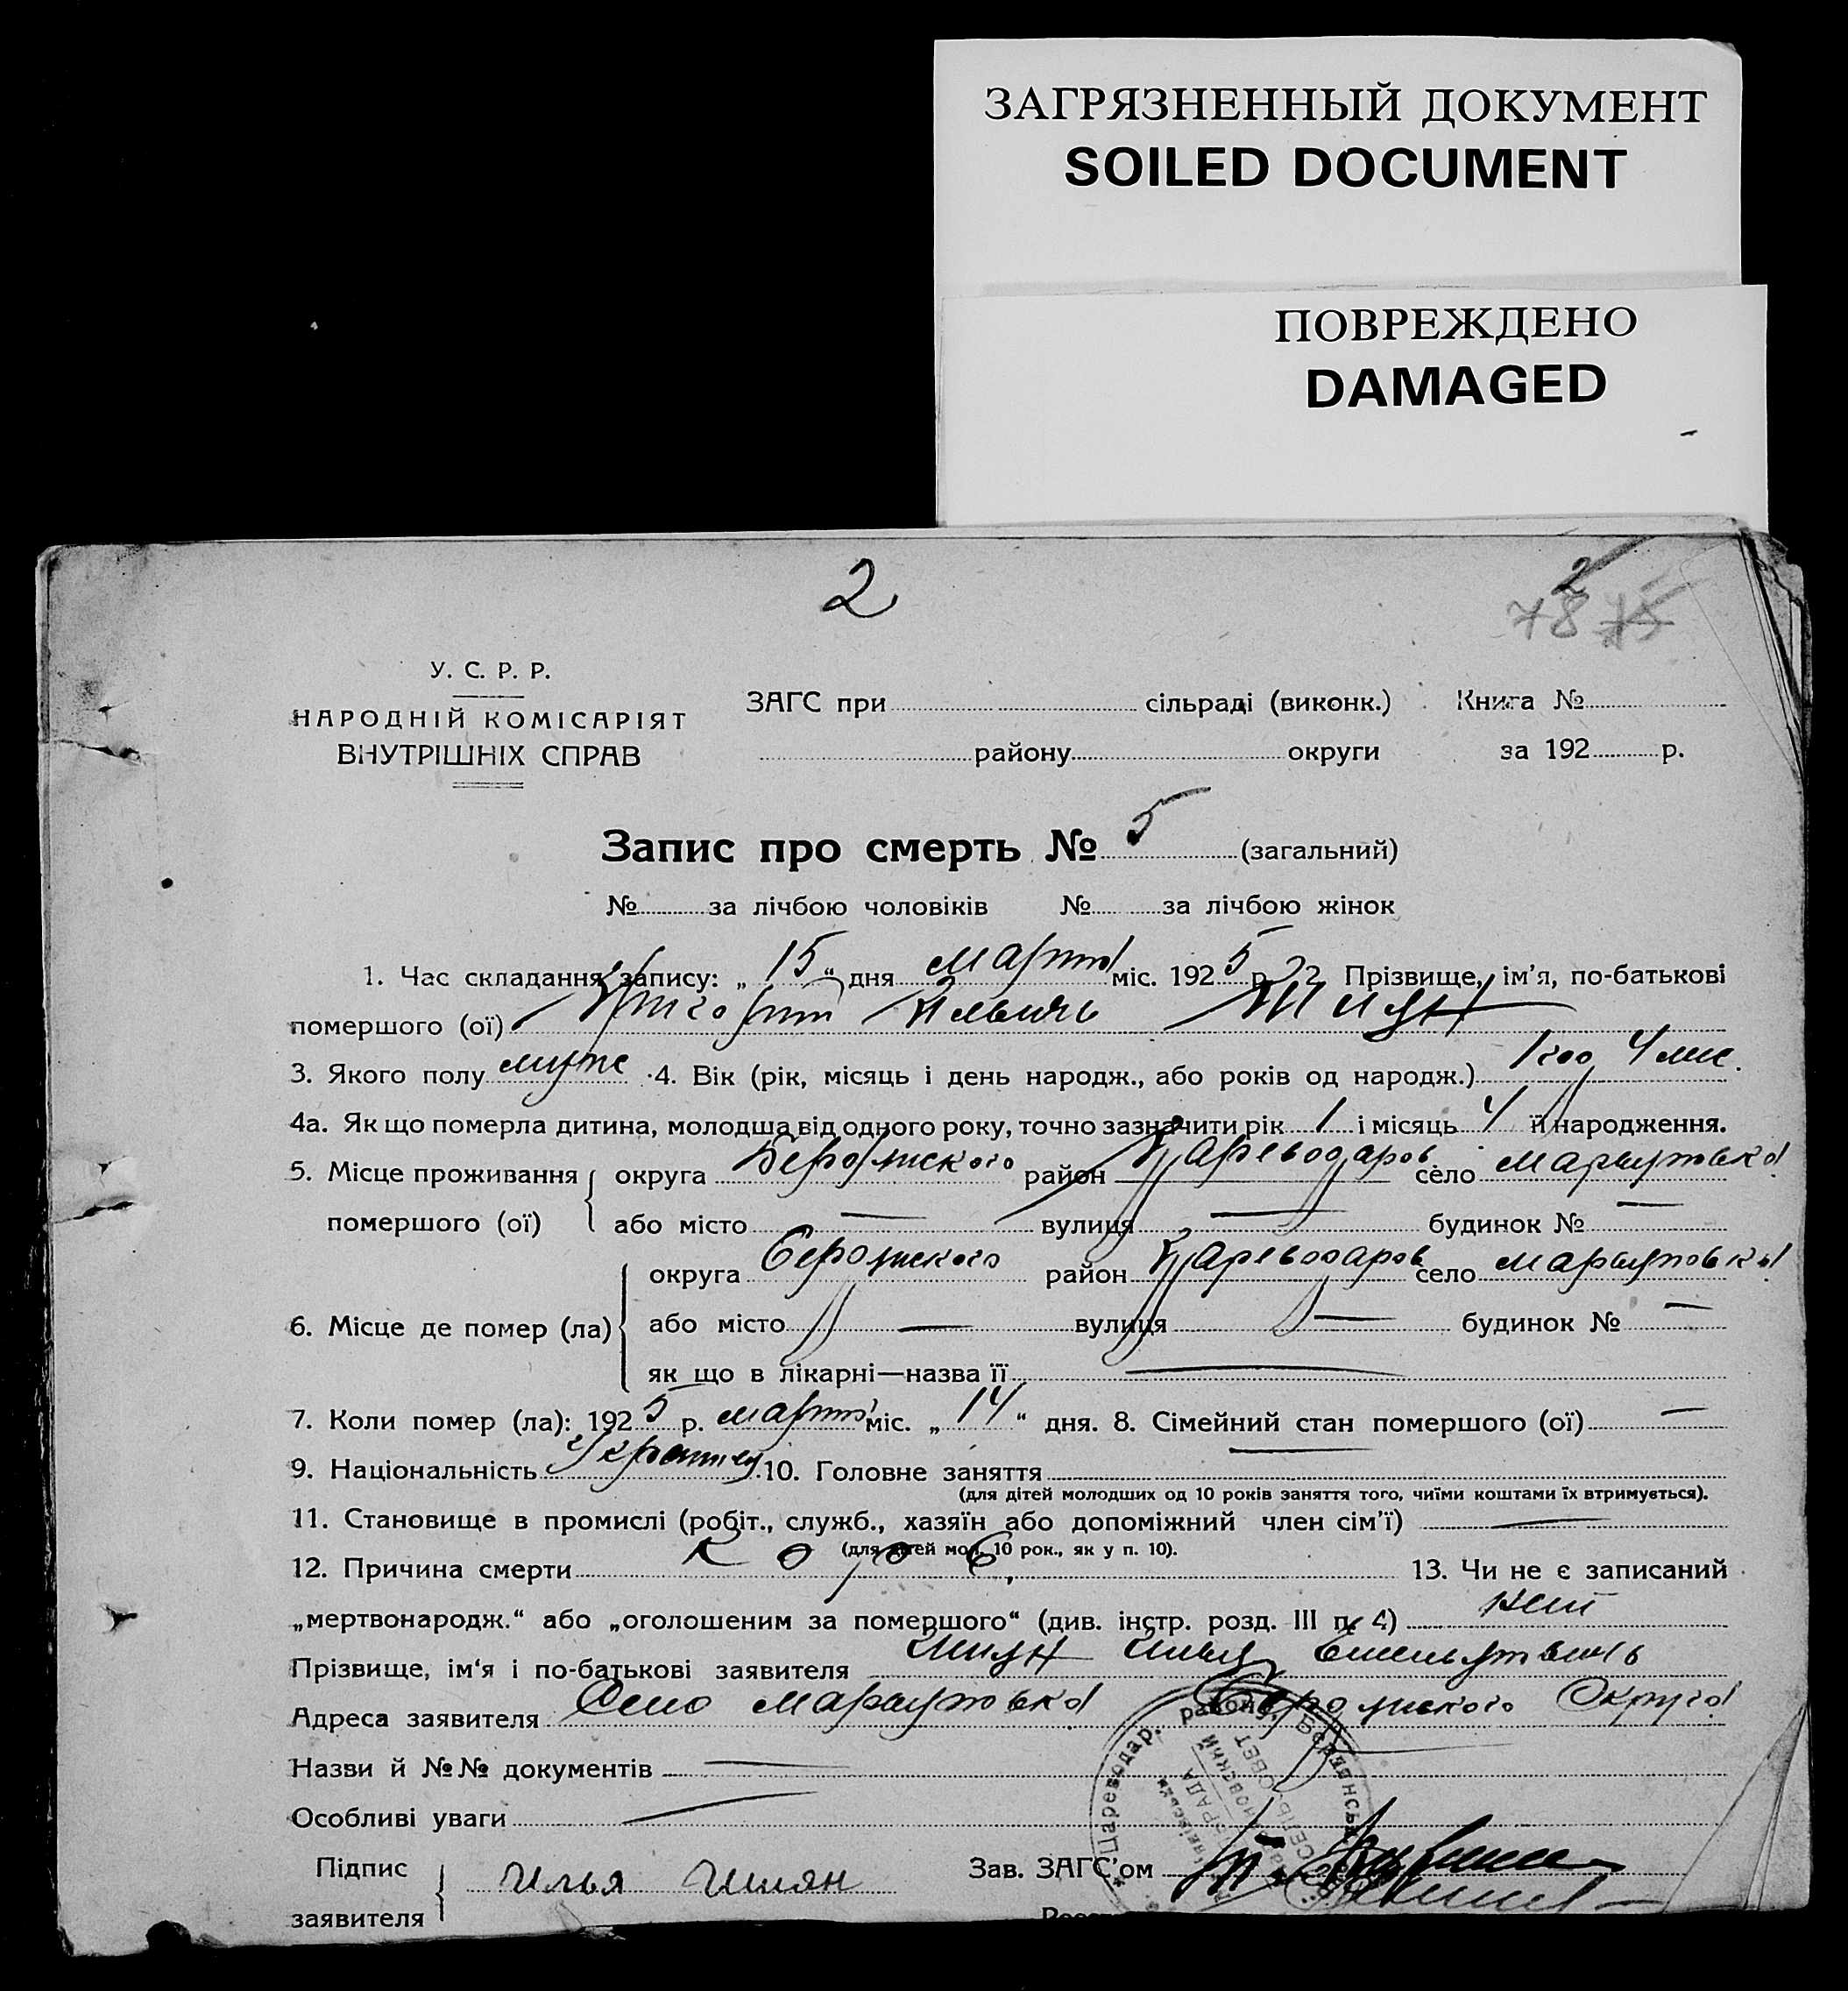 ЗАГРЯЗНЕННЫЙ ДОКУМЕНТ
SOILED DOCUMENT
ПОВРЕЖДЕНО
DAMAGED
2
2
78 75
У. С. Р. Р.
НАРОДНІЙ КОМІСАРІЯТ
ВНУТРІШНІХ СПРАВ
ЗАГС при сільраді (виконк.) Книга №
району округи за 192 р.
Запис про смерть № 5 (загальний)
№ за лічбою чоловіків № за лічбою жінок
1. Час складання запису: „ 15 “ дня марта міс. 1925 р. 2 Прізвище, ім’я, по-батькові
помершого (ої) Григорий Ильич
3. Якого полу муж 4. Вік (рік, місяць і день народж., або років од народж.) 1 год 4 мес.
4а. Як що померла дитина, молодша від одного року, точно зазначити рік 1 і місяць 4 її народження.
5. Місце проживання округа район Цареводаров. село
помершого (ої) або місто — вулиця — будинок № —
округа район Цареводаров село
6. Місце де помер (ла) або місто — вулиця — будинок № —
як що в лікарні—назва її —
7. Коли помер (ла): 1925 р. марта міс. „ 14 “ дня. 8. Сімейний стан помершого (ої) —
9. Національність 10. Головне заняття —
(для дітей молодших од 10 років заняття того, чиїми коштами їх втримується).
11. Становище в промислі (робіт., служб., хазяїн або допоміжний член сім’ї) —
(для дітей мол. 10 рок., як у п. 10).
12. Причина смерти Корь, 13. Чи не є записаний
„мертвонародж.“ або „оголошеним за помершого“ (див. інстр. розд. III п. 4) нет
Прізвище, ім‘я і по-батькові заявителя Илья
Адреса заявителя Село Округа
Назви й №№ документів —
Особливі уваги —
Цареводар. району, Бердянськ.
Підпис Илья Шиян Зав. ЗАГС’ом
заявителя